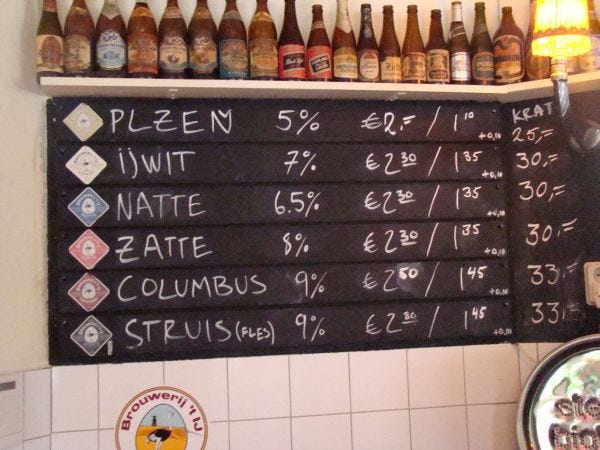 KRAT
PLZEN 5% €2,- / 1 10 +0,10 25,=
IJWIT 7% €2 30 / 1 35 +0,10 30,=
NATTE 6.5% €2 30 / 1 35 +0,10 30,=
ZATTE 8% €2 30 / 1 35 +0,10 30,=
COLUMBUS 9% €2 50 / 1 45 +0,10 33,=
STRUIS (FLES) 9% €2 80 / 1 45 +0,10 33,=
Brouwerij 't IJ